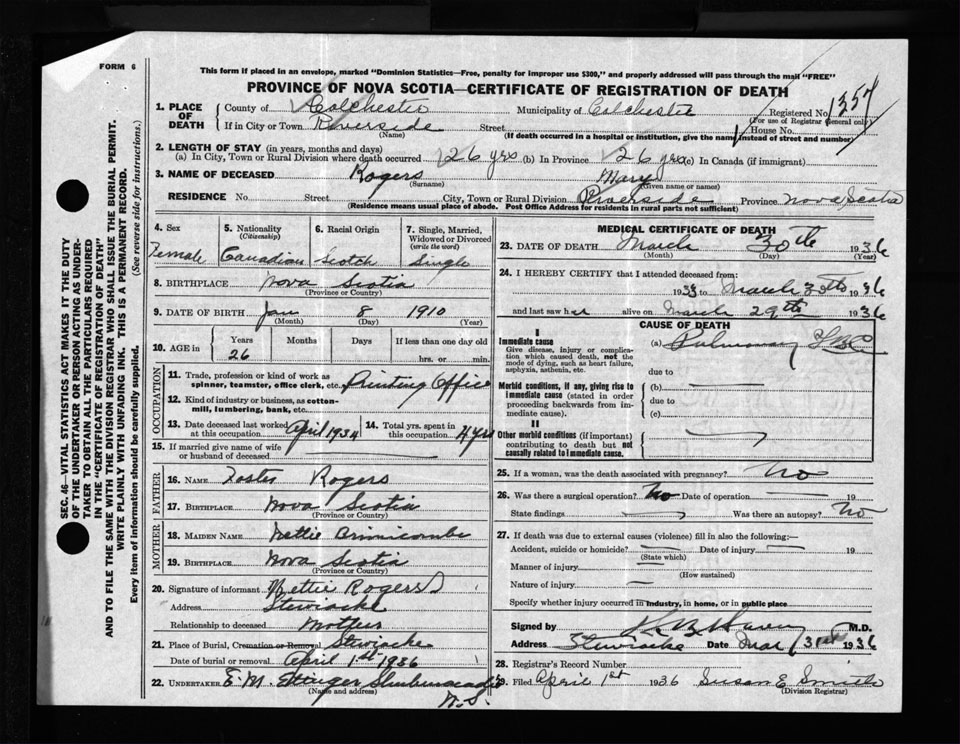 FORM 6
This form if placed in an envelope, marked "Dominion Statistics—Free, penalty for improper use $300," and properly addressed will pass through the mail "FREE"
PROVINCE OF NOVA SCOTIA—CERTIFICATE OF REGISTRATION OF DEATH
SEC. 46—VITAL STATISTICS ACT MAKES IT THE DUTY
OF THE UNDERTAKER OR PERSON ACTING AS UNDER-
TAKER TO OBTAIN ALL THE PARTICULARS REQUIRED
IN THE "CERTIFICATE OF REGISTRATION OF DEATH"
AND TO FILE THE SAME WITH THE DIVISION REGISTRAR WHO SHALL ISSUE THE BURIAL PERMIT.
WRITE PLAINLY WITH UNFADING INK. THIS IS A PERMANENT RECORD.
Every item of information should be carefully supplied. (See reverse side for instructions.)
1. PLACE OF DEATH County of Colchester Municipality of Colchester Registered No. 1357
(For use of Registrar General only)
If in City or Town Riverside Street House No.
(Name) (If death occurred in a hospital or institution, give the name instead of street and number)
2. LENGTH OF STAY (in years, months and days)
(a) In City, Town or Rural Division where death occurred 26 yrs (b) In Province 26 yrs (c) In Canada (if immigrant)
3. NAME OF DECEASED Rogers Mary
(Surname) (Given name or names)
RESIDENCE No. Street City, Town or Rural Division Riverside Province Nova Scotia
(Residence means usual place of abode. Post Office Address for residents in rural parts not sufficient)
4. Sex 5. Nationality (Citizenship) 6. Racial Origin 7. Single, Married, Widowed or Divorced (write the word)
Female Canadian Scotch Single
8. BIRTHPLACE Nova Scotia
(Province or Country)
9. DATE OF BIRTH Jan 8 1910
(Month) (Day) (Year)
10. AGE in Years Months Days If less than one day old
26 hrs. or min.
OCCUPATION
11. Trade, profession or kind of work as spinner, teamster, office clerk, etc. Printing Office
12. Kind of industry or business, as cotton-mill, lumbering, bank, etc.
13. Date deceased last worked at this occupation April 1934 14. Total yrs. spent in this occupation 4 yrs
15. If married give name of wife or husband of deceased
FATHER
16. NAME Foster Rogers
17. BIRTHPLACE Nova Scotia
(Province or Country)
MOTHER
18. MAIDEN NAME Nettie Brimicombe
19. BIRTHPLACE Nova Scotia
(Province or Country)
20. Signature of informant Nettie Rogers
Address Stewiacke
Relationship to deceased Mother
21. Place of Burial, Cremation or Removal Stewiacke
Date of burial or removal April 1st 1936
22. UNDERTAKER E. M. Ettinger Shubenacadie
(Name and address) N.S.
MEDICAL CERTIFICATE OF DEATH
23. DATE OF DEATH March 30th 1936
(Month) (Day) (Year)
24. I HEREBY CERTIFY that I attended deceased from:
1933 to March 30th 1936
and last saw her alive on March 29th 1936
CAUSE OF DEATH
I
Immediate cause (a) Pulmonary
Give disease, injury or complication which caused death, not the mode of dying, such as heart failure, asphyxia, asthenia, etc.
due to
Morbid conditions, if any, giving rise to Immediate cause (stated in order proceeding backwards from immediate cause).
(b)
due to
(c)
II
Other morbid conditions (if important) contributing to death but not causally related to Immediate cause.
25. If a woman, was the death associated with pregnancy? No
26. Was there a surgical operation? No Date of operation 19
State findings Was there an autopsy? No
27. If death was due to external causes (violence) fill in also the following:—
Accident, suicide or homicide? Date of injury 19
(State which)
Manner of injury
(How sustained)
Nature of injury
Specify whether injury occurred in industry, in home, or in public place
Signed by M.D.
Address Stewiacke Date Mar 31st 1936
28. Registrar's Record Number
29. Filed April 1st 1936 Susan E Smith
(Division Registrar)